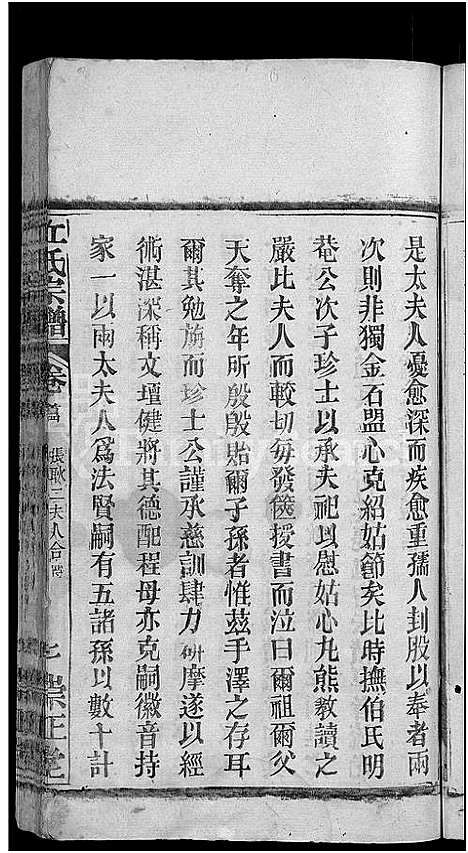 是太夫人憂愈深而疾愈重孺人刲股以奉者兩
次則非獨金石盟心克紹姑節矣比時撫伯氏明
菴公次子珍士以承夫祀以慰姑心九熊教讀之
嚴比夫人而較切每發篋授書而泣曰爾祖爾父
天奪之年所殷殷貽爾子孫者惟茲手澤之存耳
爾其勉旃而珍士公謹承慈訓肆力研摩遂以經
術湛深稱文壇健將其德配程母亦克嗣徽音持
家一以兩太夫人為法賢嗣有五諸孫以數十計
丘氏宗譜 卷 篇 張耿二夫人合傳 七 崇正堂